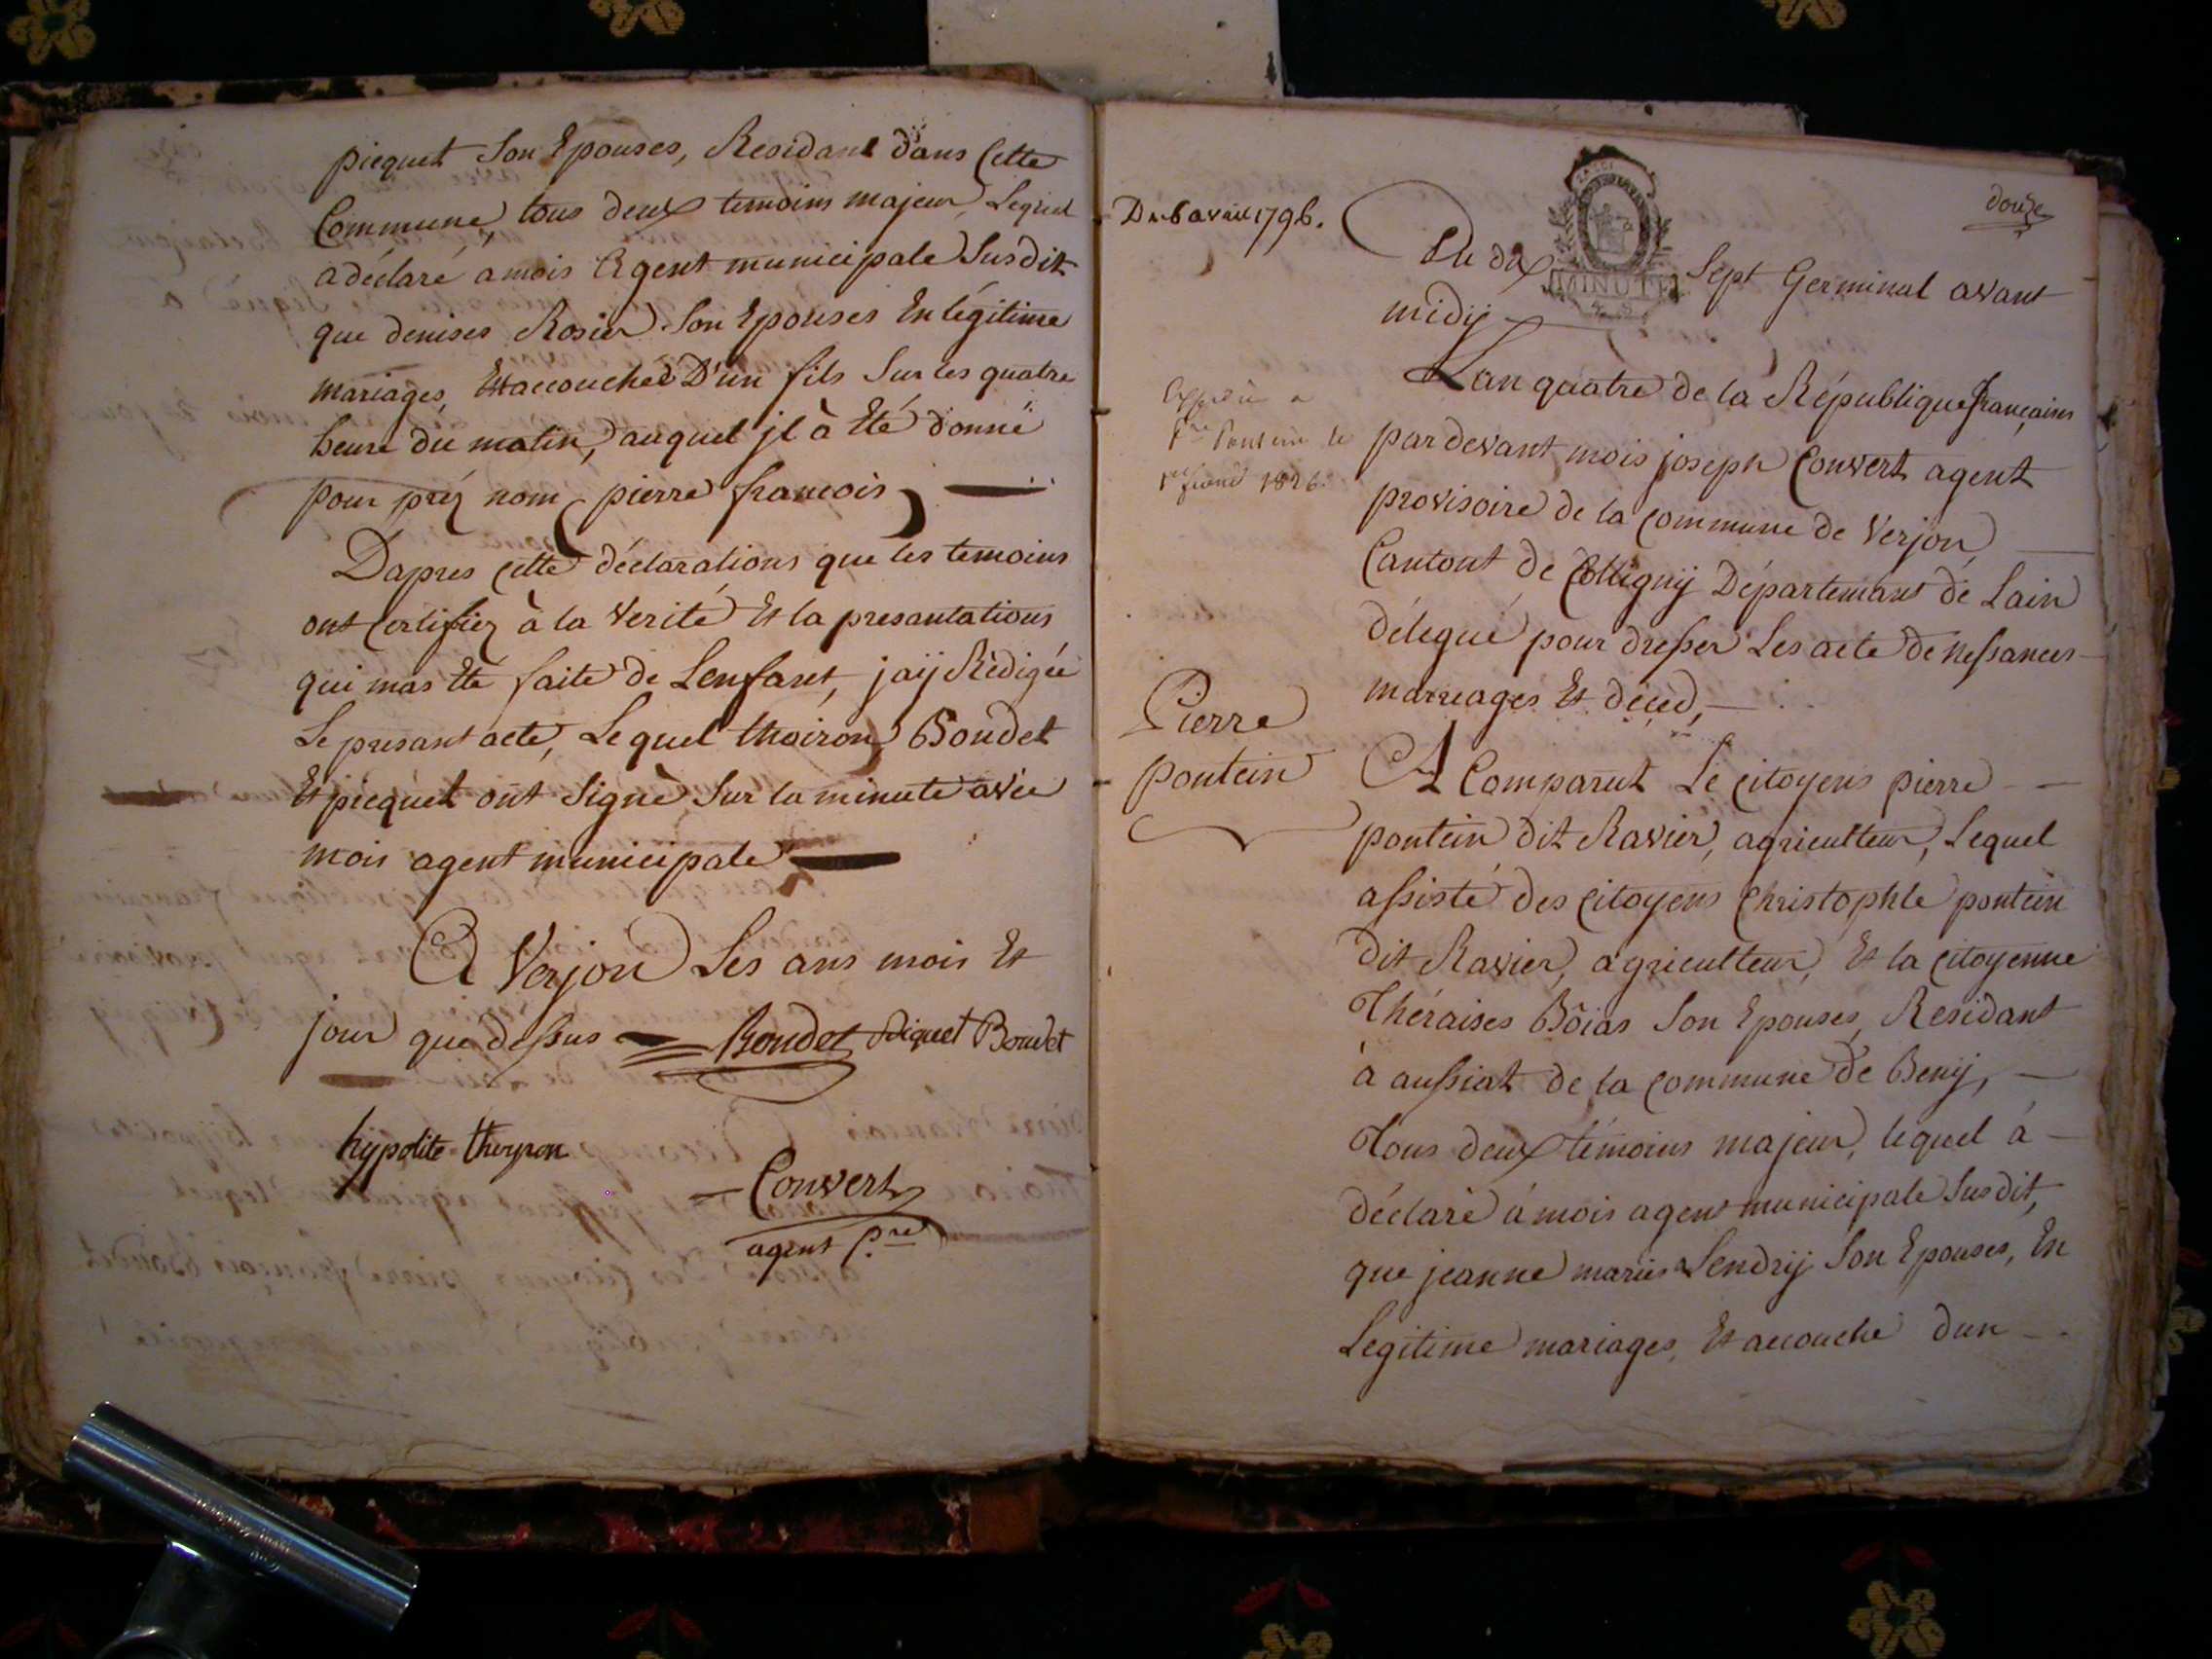 picquet Son Epouses, Residant dans Cette
Commune, tous deux temoins majeur, Lequel
a déclaré a mois Agent municipale Susdit
que denises Rosier Son Epouses En légitime
mariages, Et accouchée D'un fils Sur les quatre
heure du matin, auquel jl à Eté donné
pour préz nom (pierre françois)
Dapres Cette déclarations que les temoins
ont Certifiez à la Verité Et la presantations
qui mas Eté faite de Lenfant, jaij Rédigée
Le presant acte, Lequel thoiron, Boudet
Et picquet ont Signè Sur la minute avèc
mois agent municipale
A Verjon Les ans mois Et
jour que dessus Boudet Piquet Boudet
hÿpolite thoyron
Convert
agent P.re
douze
Du 6 avril 1796.
Du dix Sept Germinal avant
MINUTE
midij
Lan quatre de la République françaises
pardevant mois joseph Convert agent
provisoire de la Commune de Verjon
Cantont de Collignij Département de Lain
délegué pour dresser Les acte de nessances
marieages Et déced,
1826.
Pierre
pontein
A Comparut Le Citoyens pierre
pontein dit Ravier, agriculteur, Lequel
assisté des Citoyens Christophle pontein
dit Ravier, agriculteur, Et la Citoyenne
Théraises Bôias Son Epouses, Residant
à aussiat de la Commune de Benij,
Tous deux témoins majeur, lequel à
déclaré à mois agent municipale Susdit,
que jeanne maries Lendrij Son Epouses, En
Legitime mariages, Et accouché dun